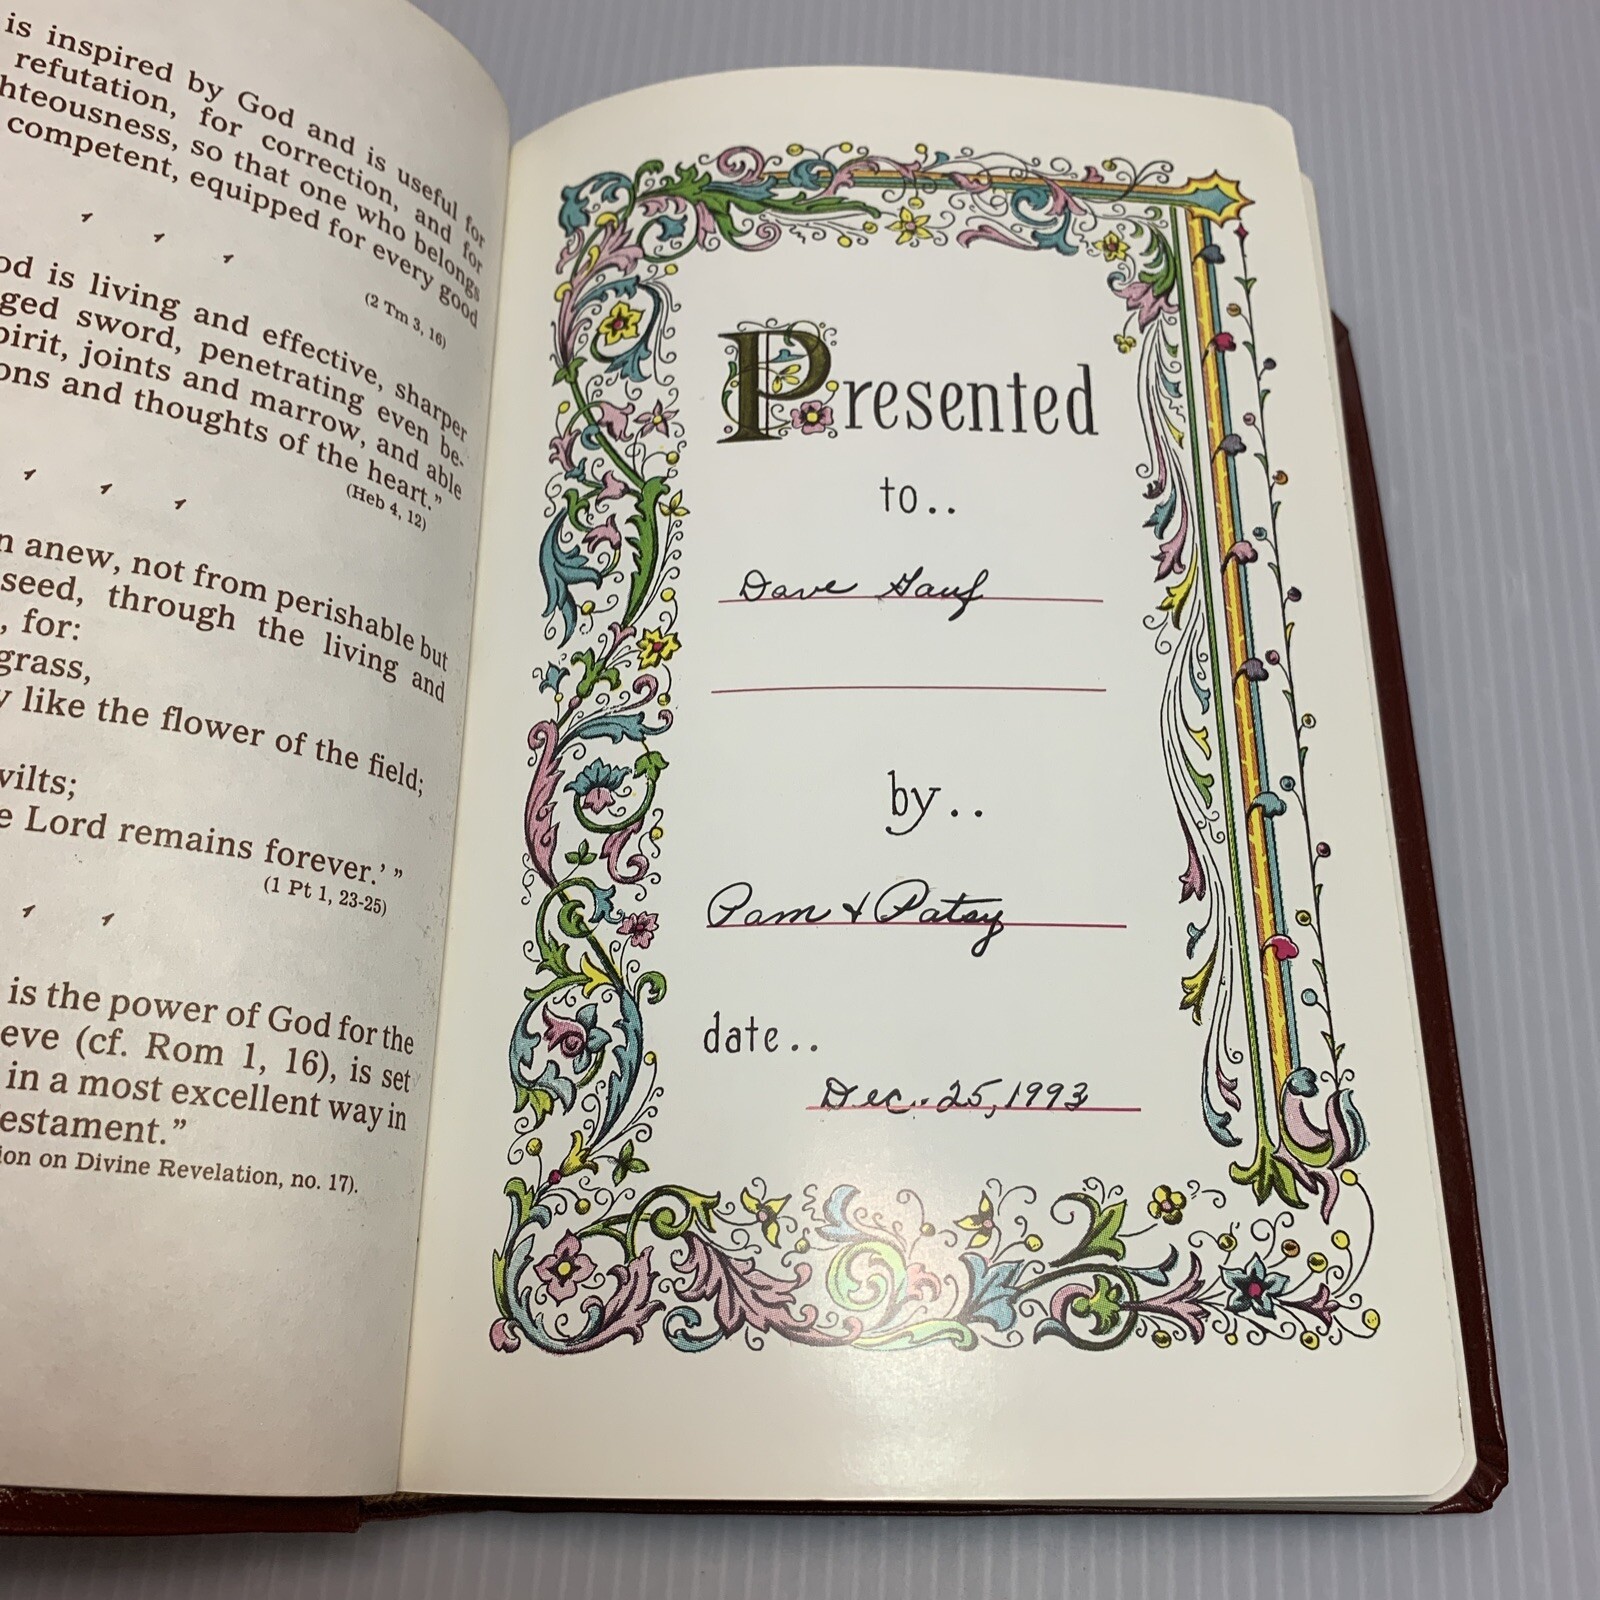 is inspired by God and is useful for
refutation, for correction, and for
hteousness, so that one who belongs
competent, equipped for every good
(2 Tm 3, 16)
od is living and effective, sharper
ged sword, penetrating even be-
pirit, joints and marrow, and able
ons and thoughts of the heart.”
(Heb 4, 12)
n anew, not from perishable but
seed, through the living and
, for:
grass,
y like the flower of the field;
wilts;
e Lord remains forever.’ ”
(1 Pt 1, 23-25)
is the power of God for the
eve (cf. Rom 1, 16), is set
in a most excellent way in
estament.”
ion on Divine Revelation, no. 17).
Presented
to..
Dave Gauf
by..
Pam & Patsy
date..
Dec. 25, 1993